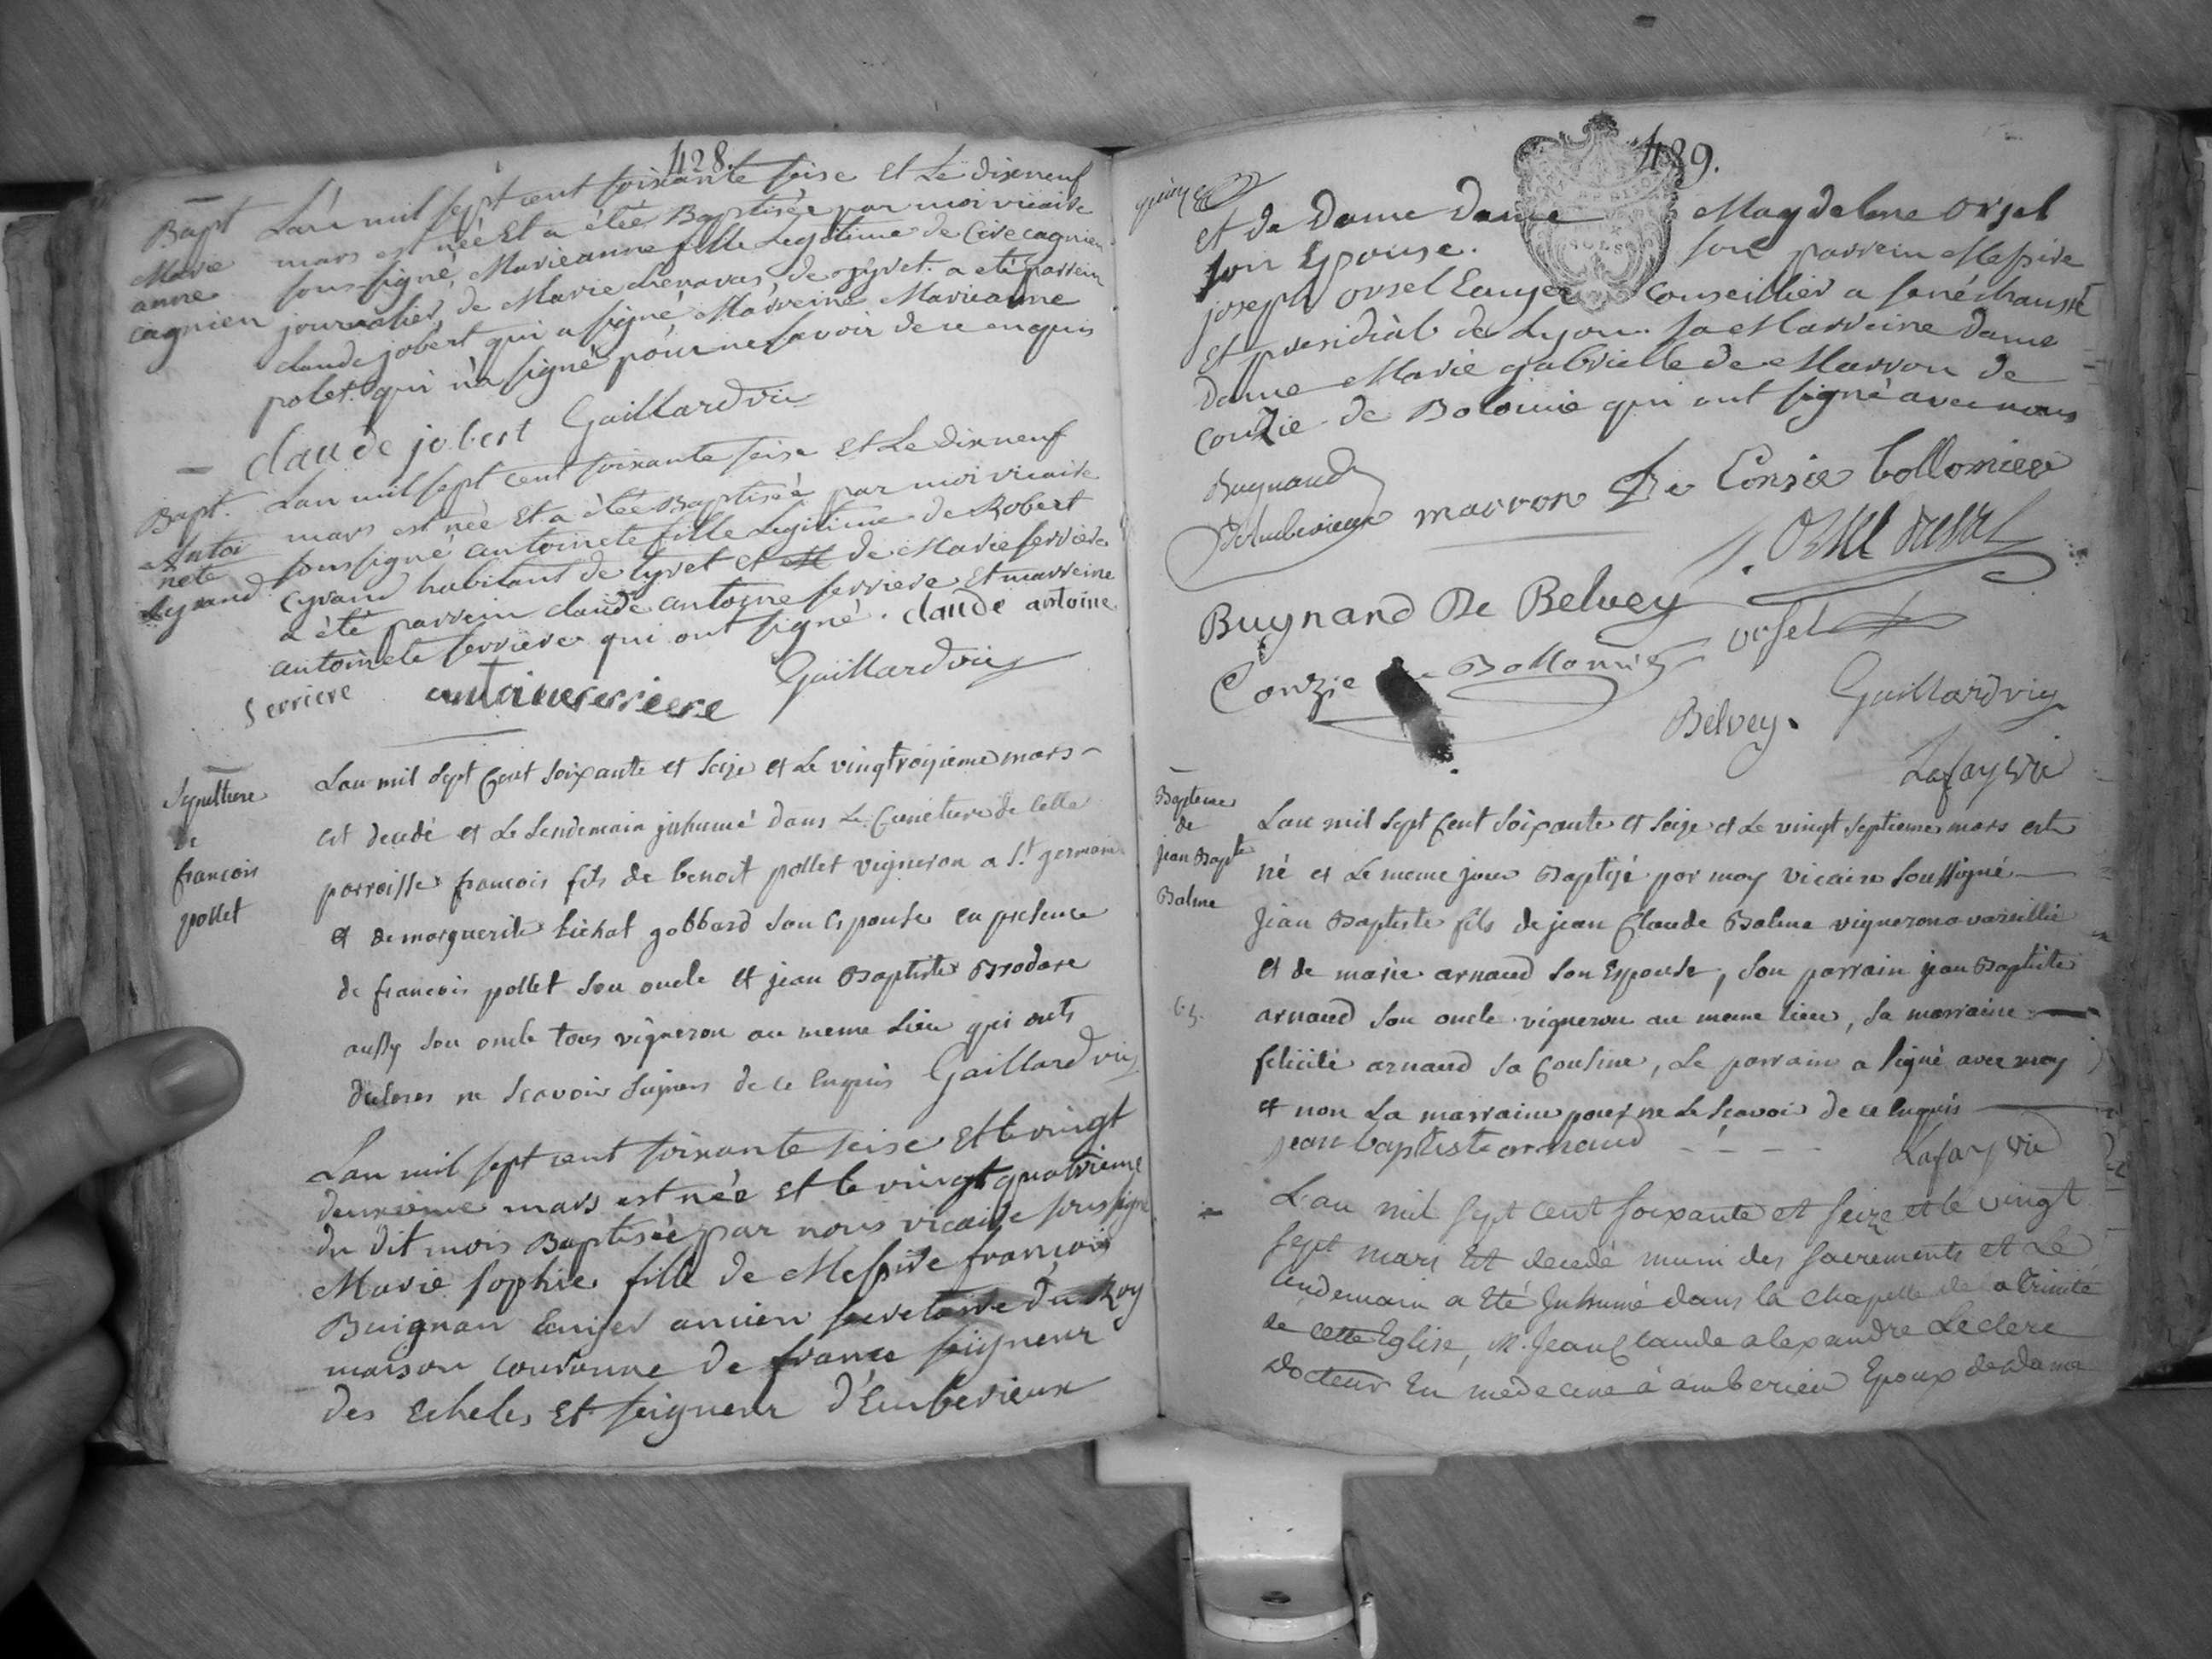 428.
Bapt
Marie
anne
cagnien
Lan mil sept cent soixante seise et Le dixneuf
mars est née et a étée Baptisée par moi vicaire
sous signé, Marieanne fille Legitime de Cire cagnien
journalier, de Marie de tyret. a eté parrein
claude jobert qui a signé Marreine Marieanne
polet. qui n'a signé pour ne savoir de ce enquis
claude jobert Gaillard vic
Bapt.
Antoi
nete
Lan mil sept cent soixante seise et Le dixneuf
mars est née et a étée Baptisée par moi vicaire
sous signé antoinete fille Legitime de Robert
habitant de tyret et de Marie ferriere
a été parrein claude antoine ferriere et marreine
antoinete ferriere qui ont signé. claude antoine
Serriere Gaillard vic
Sepulture
de
francois
pollet
Lan mil Sept Cent Soixante et Seize et Le vingtroizieme mars
est decedé et Le Lendemain inhumé dans Le Cimetiere de Cette
parroisse francois fils de benoit pollet vigneron a St germain
et de marguerite tichat gobbard Son Espouse en presence
de francois pollet Son oncle et jean Baptiste Brodare
aussy Son oncle tous vigneron au meme Lieu qui onts
declares ne Scavoir Signer de ce Enquis Gaillard vic
Lan mil sept cent soixante seise et le vingt
deuxieme mars est née et le vingt quatrieme
du dit mois Baptisée par nous vicaire sous signé
Marie sophie fille de Messire francois
Buignan Ecuiyer ancien secretaire du Roy
maison couronne de france seigneur
des Echeles et seigneur d'Emberieux
429.
et de Dame Dame Magdelene Orsel
son Epouse. son parrein Messire
joseph Orsel Ecuyer Conseillier a senéchaussé
et presidial de Lyon. sa Marreine Dame
Dame Marie gabrielle de Marron de
Couzie de Bolomie qui ont signé avec nous
Buynand
D'Amberieux marron De Conzie bollomier
Buynand De Belvey orsel
Conzie Bollomier
Belvey. Gaillard vic
Lafay vic
Bapteme
de
jean Bapte
Balme
Lan mil Sept Cent Soixante et Seize et Le vingt Septieme mars est
né et Le meme jour Baptizé par moy vicaire Soussigné
Jean Baptiste fils de jean Claude Balme vigneron a vareille
et de marie arnaud Son Espouse, Son parrain jean Baptiste
arnaud Son oncle vigneron au meme lieu, Sa marraine
felicité arnaud Sa Cousine, Le parrain a Signé avec moy
et non La marraine pour ne Le Scavoir de ce Enquis
jean baptiste arnaud Lafay vic
L'an mil sept cent soixante et seize et le vingt
sept mars est decedé muni des sacrements et Le
lendemain a eté Inhumé dans la chapelle de la trinité
de cette Eglise, M. Jean Claude alexandre Leclerc
Docteur En medecine à amberieu Epoux de dame